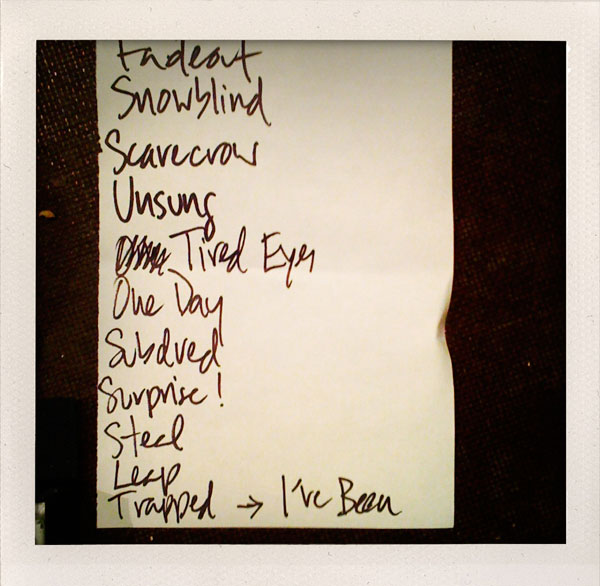 Fadeout
Snowblind
Scarecrow
Unsung
Tired Eyes
One Day
Subdued
Surprise!
Steal
Leap
Trapped → I've Been